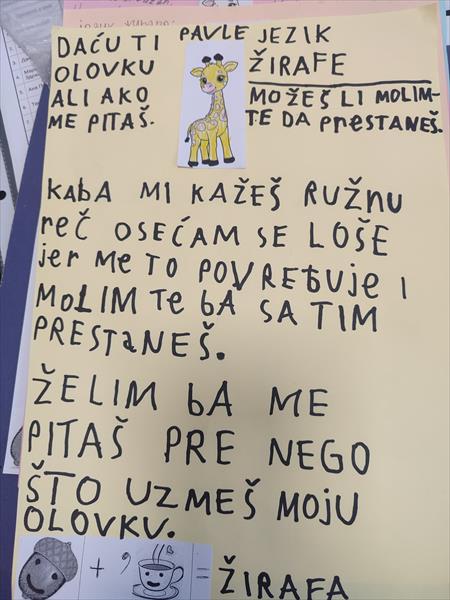 PAVLE
DAĆU TI
OLOVKU
ALI AKO
ME PITAŠ.
JEZIK
ŽIRAFE
MOŽEŠ LI MOLIM-
TE DA PreSTANEŠ.
KAbA MI KAŽEŠ RUŽNU
reČ OSEĆAM SE LOŠE
jer Me TO POVREĐUje I
MOLIM Te bA SA TIM
PRESTaNEŠ.
ŽELIM bA ME
PITAŠ PRE NEGO
ŠTO UZMEŠ MOJU
OLOVKU.
+ , = ŽIRAFA